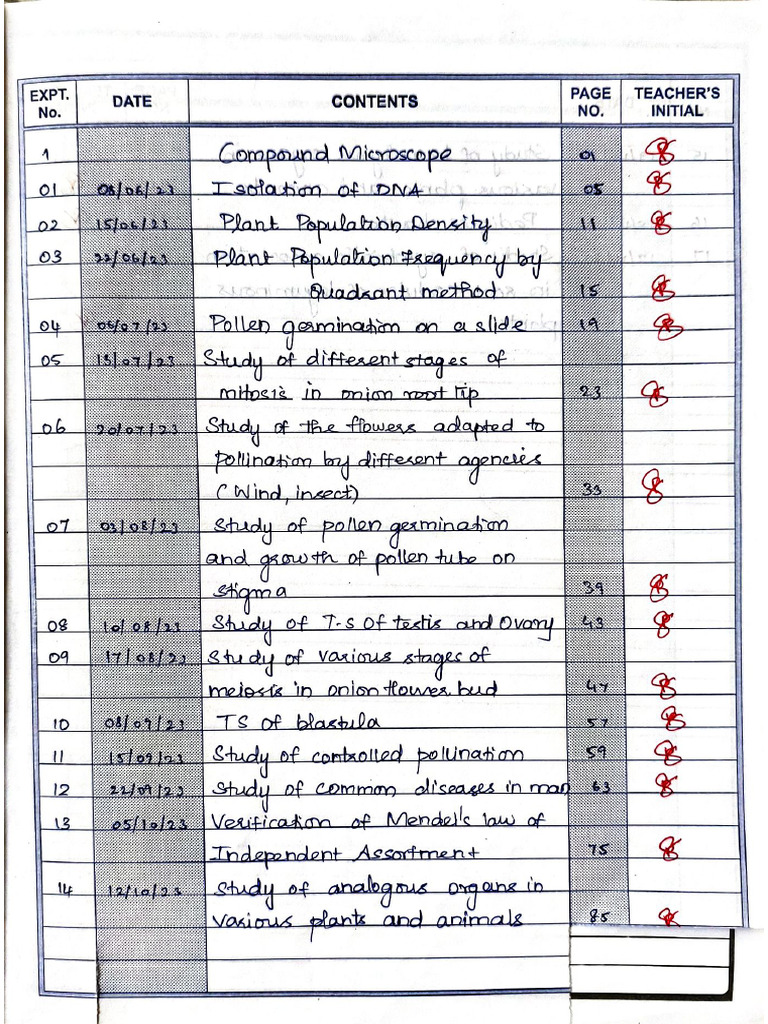 EXPT. No. DATE CONTENTS PAGE NO. TEACHER'S INITIAL
1 Compound Microscope 01
01 08/06/23 Isolation of DNA 05
02 15/06/23 Plant Population Density 11
03 22/06/23 Plant Population Frequency by
Quadrant method 15
04 06/07/23 Pollen germination on a slide 19
05 13/07/23 Study of different stages of
mitosis in onion root tip 23
06 20/07/23 Study of the flowers adapted to
pollination by different agencies
(Wind, insect) 33
07 03/08/23 Study of pollen germination
and growth of pollen tube on
stigma 39
08 10/08/23 Study of T-S of testis and Ovary 43
09 17/08/23 Study of various stages of
meiosis in onion flower bud 47
10 08/09/23 TS of blastula 57
11 15/09/23 Study of controlled pollination 59
12 22/09/23 Study of common diseases in man 63
13 05/10/23 Verification of Mendel's law of
Independent Assortment 75
14 12/10/23 Study of analogous organs in
various plants and animals 85